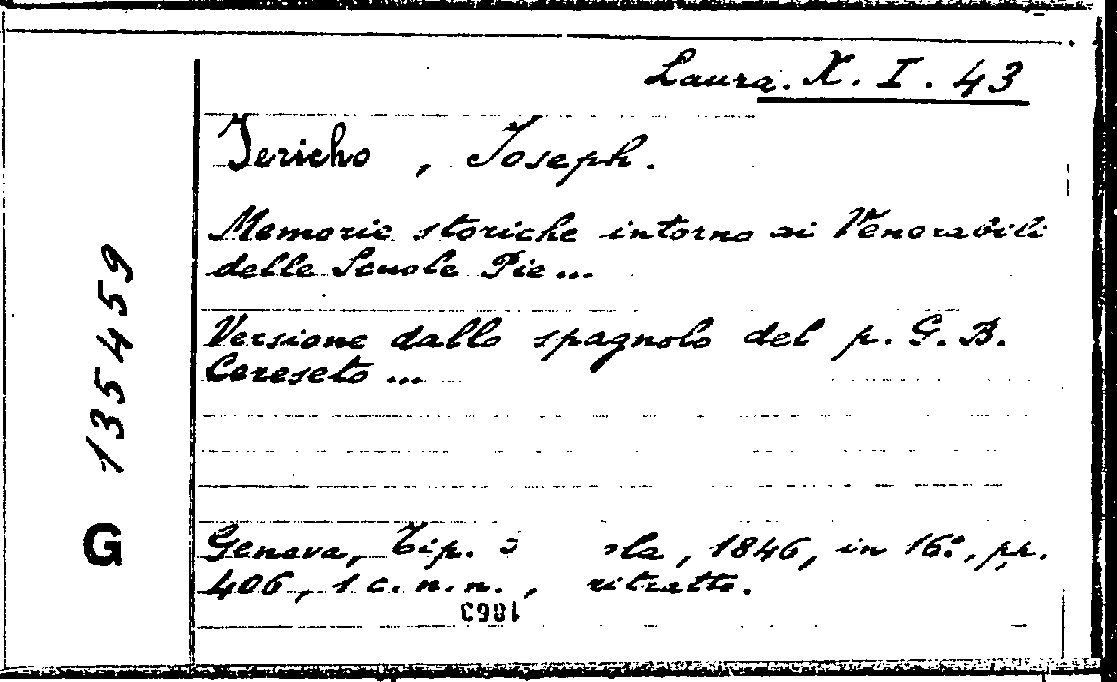 Laura. X. I. 43
Jericho, Joseph.
Memorie storiche intorno ai Venerabili
delle Scuole Pie...
Versione dallo spagnolo del p. G. B.
Cereseto...
Genova, Tip. , 1846, in 16°, pp.
406, 1 c. n. n., ritratto.
1863
G 135459